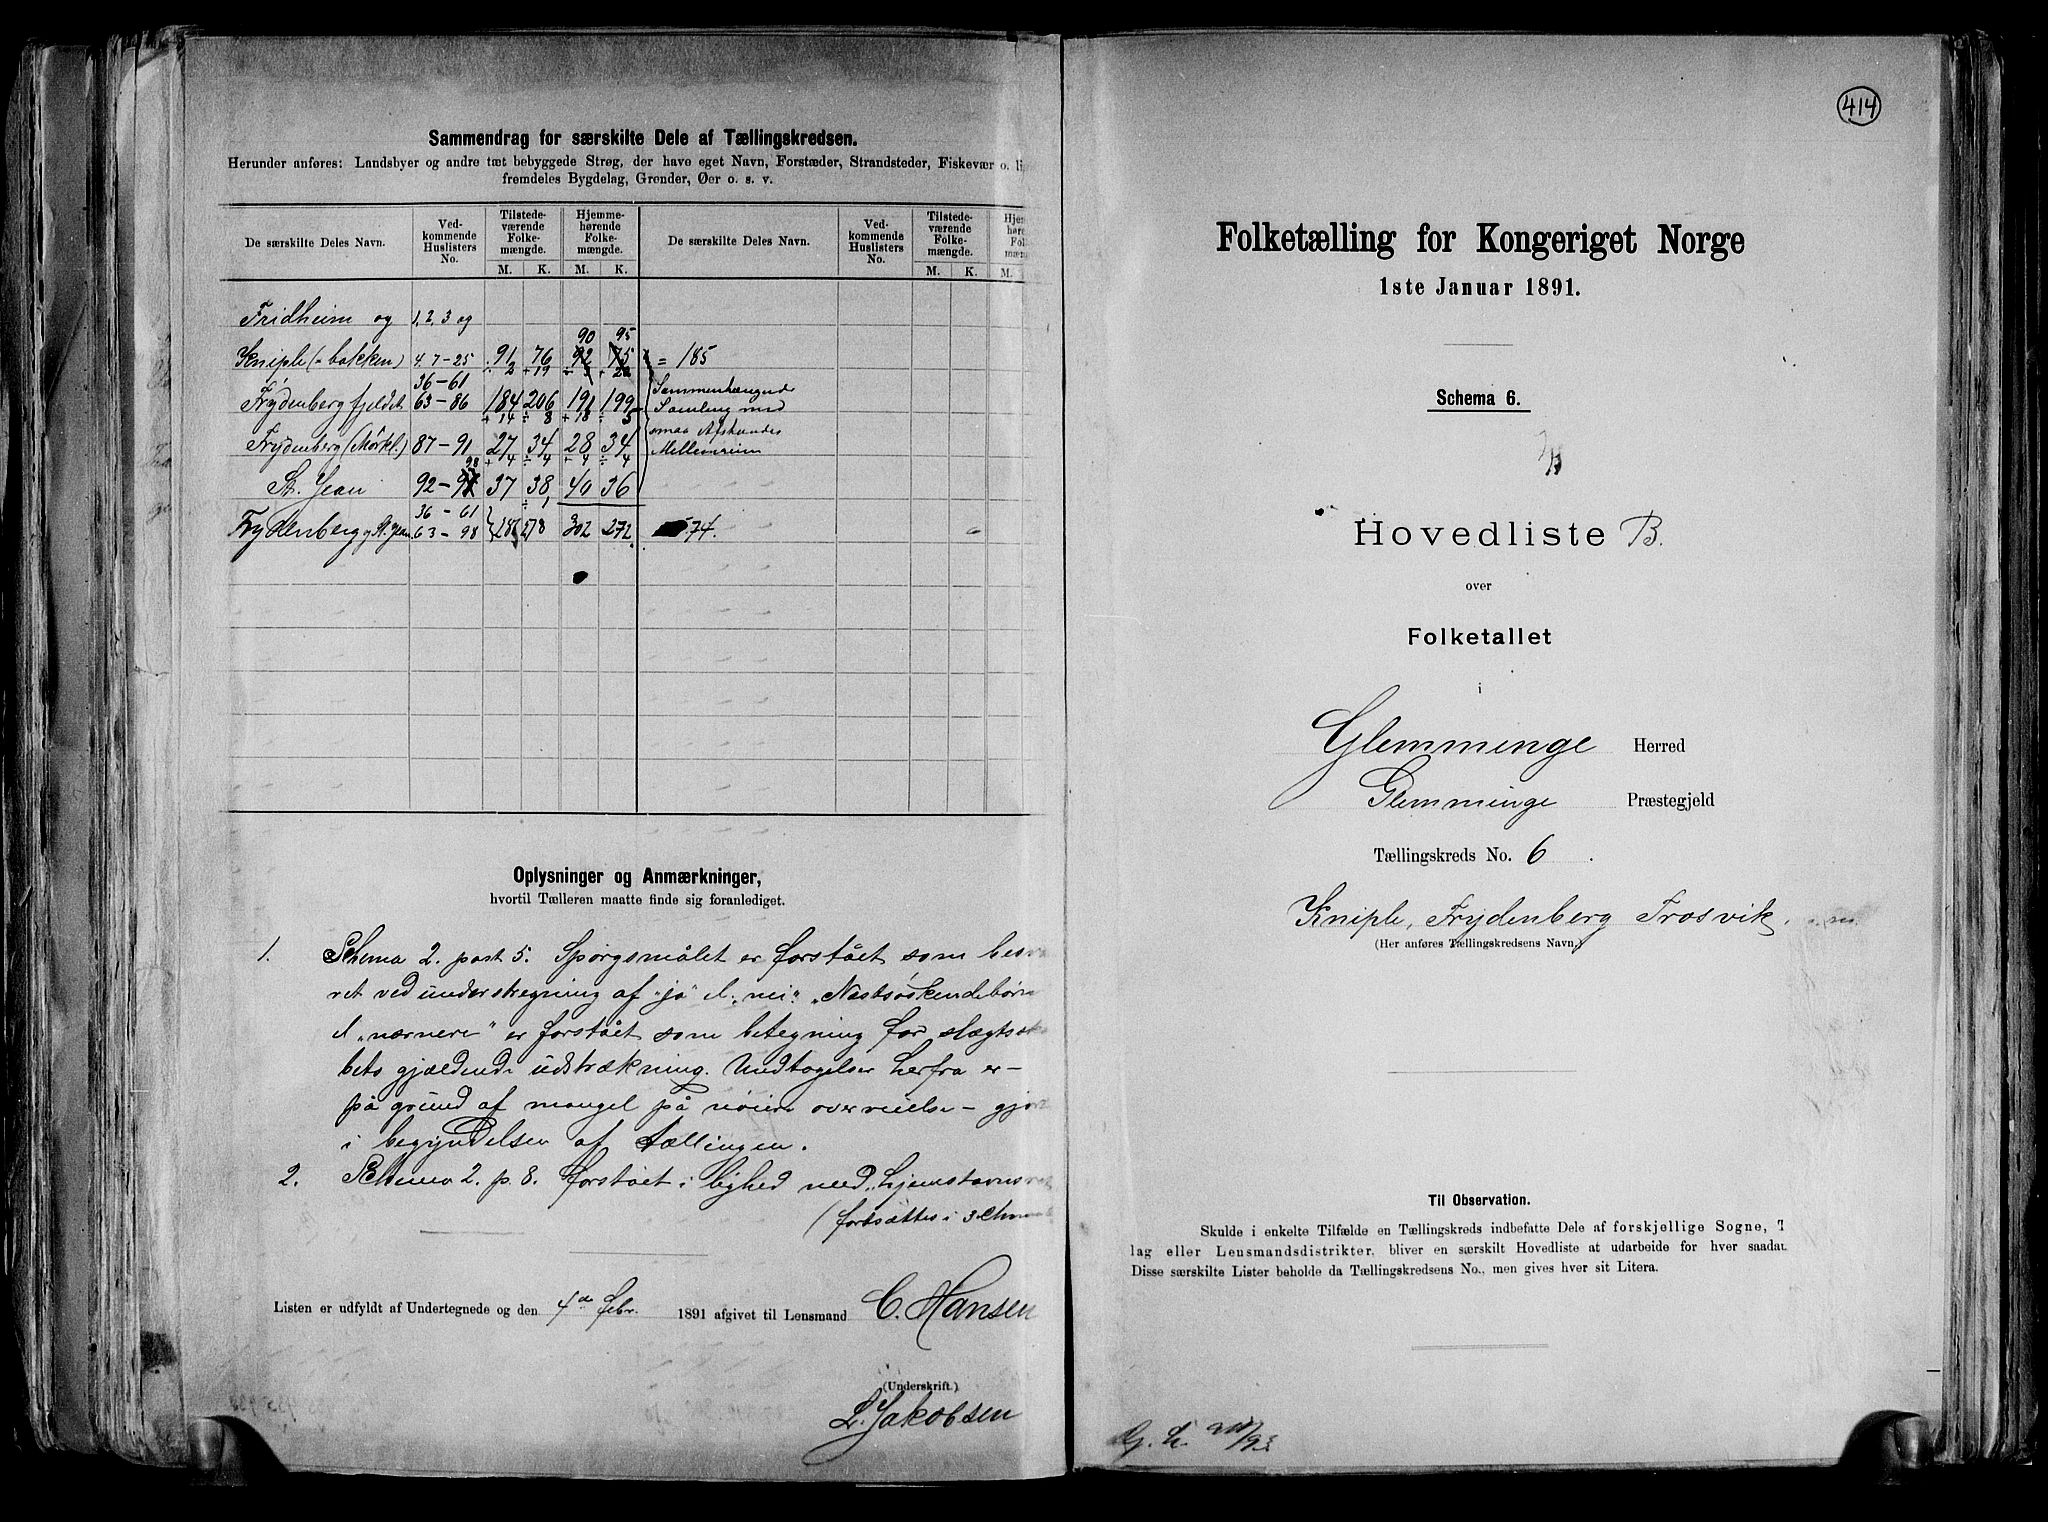 Sammendrag for særskilte Dele af Tællingskredsen.
Herunder anføres: Landsbyer og andre tæt bebyggede Strøg, der have eget Navn, Forstæder, Strandsteder, Fiskevær o. li
fremdeles Bygdelag, Grender, Øer o. s. v.
De særskilte Deles Navn. Ved-kommende Huslisters No. Tilstede-værende Folke-mængde. M. K. Hjemme-hørende Folke-mængde. M. K. De særskilte Deles Navn. Ved-kommende Huslisters No. Tilstede-værende Folke-mængde. M. K. Hjem høre Fol mæn M.
Fridheim og 1, 2, 3 og
90 95
Kniple (= bakken) 4 7-25 91 76 92 75 = 185
÷ 2 + 19
36-61 Sammenhængende
Frydenberg fjeldet 63-86 184 206 191 199 Samling med
+ 14 ÷ 8 + 18 ÷ 5 smaa Afstandes
Frydenberg (Mörkl.) 87-91 27 34 28 34 Mellemrum
+ 4 ÷ 4 + 4 ÷ 4
98
St. Jean 92-97 37 38 40 36
36-61
Frydenberg og St. Jean 63-98 278 302 272 574.
Oplysninger og Anmærkninger,
hvortil Tælleren maatte finde sig foranlediget.
1. Schema 2. post 5. Spørgsmålet er forstået som besva
ret ved understregning af "ja" el. "nei". "Næstsøskendebørn
el. "nærnere" er forstået som betegning for slægtsska
bets gjældende udstrækning. Undtagelser herfra er -
på grund af mangel på nøiere overveielse - gjort
i begyndelsen af tællingen.
2. Schema 2. p. 8. forstået i lighed med "hjemstavns
(fortsættes i schema
Listen er udfyldt af Undertegnede og den 4de febr. 1891 afgivet til Lensmand C. Hansen
(Underskrift.)
L. Jakobsen
414
Folketælling for Kongeriget Norge
1ste Januar 1891.
Schema 6.
Hovedliste B.
over
Folketallet
i
Glemminge Herred
Glemminge Præstegjeld
Tællingskreds No. 6.
Kniple, Frydenberg Trosvik. m
(Her anføres Tællingskredsens Navn.)
Til Observation.
Skulde i enkelte Tilfælde en Tællingskreds indbefatte Dele af forskjellige Sogne, T
lag eller Lensmandsdistrikter, bliver en særskilt Hovedliste at udarbeide for hver saadan
Disse særskilte Lister beholde da Tællingskredsens No., men gives hver sit Litera.